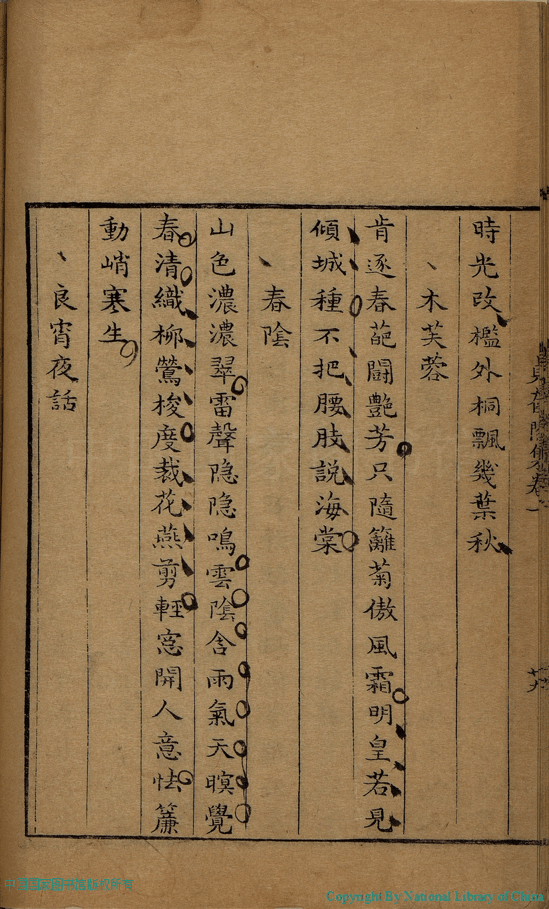 時光改檻外桐飄幾葉秋
木芙蓉
肯逐春葩鬭艷芳只隨籬菊傲風霜明皇若見
傾城種不把腰肢說海棠
春陰
山色濃濃翠雷聲隐隐鳴雲陰含雨氣天暝覺
春清織柳鶯梭度裁花燕剪輕窓開人意怯簾
動峭寒生
良宵夜話
Copyright By National Library of China